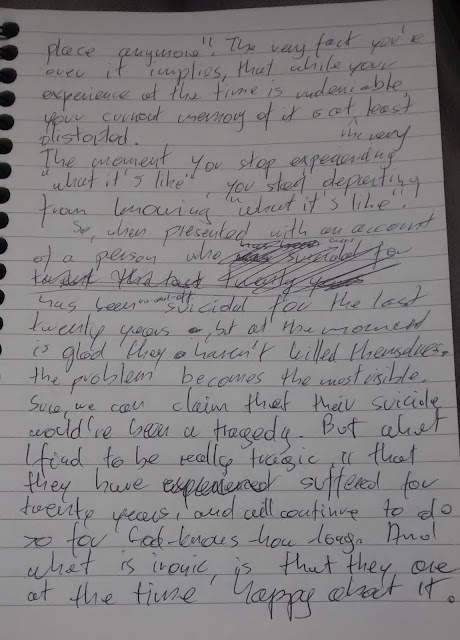 place anymore". The very fact you're
over it implies, that while your
experience at the time is undeniable,
your current memory of it is at the very least
distorted.
The moment you stop experiencing
"what it's like", you start departing
from knowing "what it's like"
So, when presented with an account
of a person who
has been on-and-off suicidal for the last
twenty years, but at the moment
is glad they haven't killed themselves.
the problem becomes the most visible.
Sure, we can claim that their suicide
would've been a tragedy. But what
I find to be really tragic, is that
they have suffered for
twenty years, and will continue to do
so for God-knows-how long. And
what is ironic, is that they are
at the time happy about it.